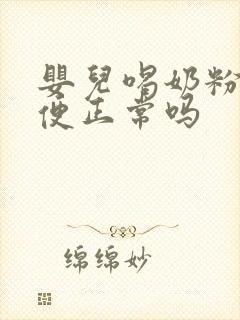 嬰兒喝奶粉
便正常吗
绵绵妙